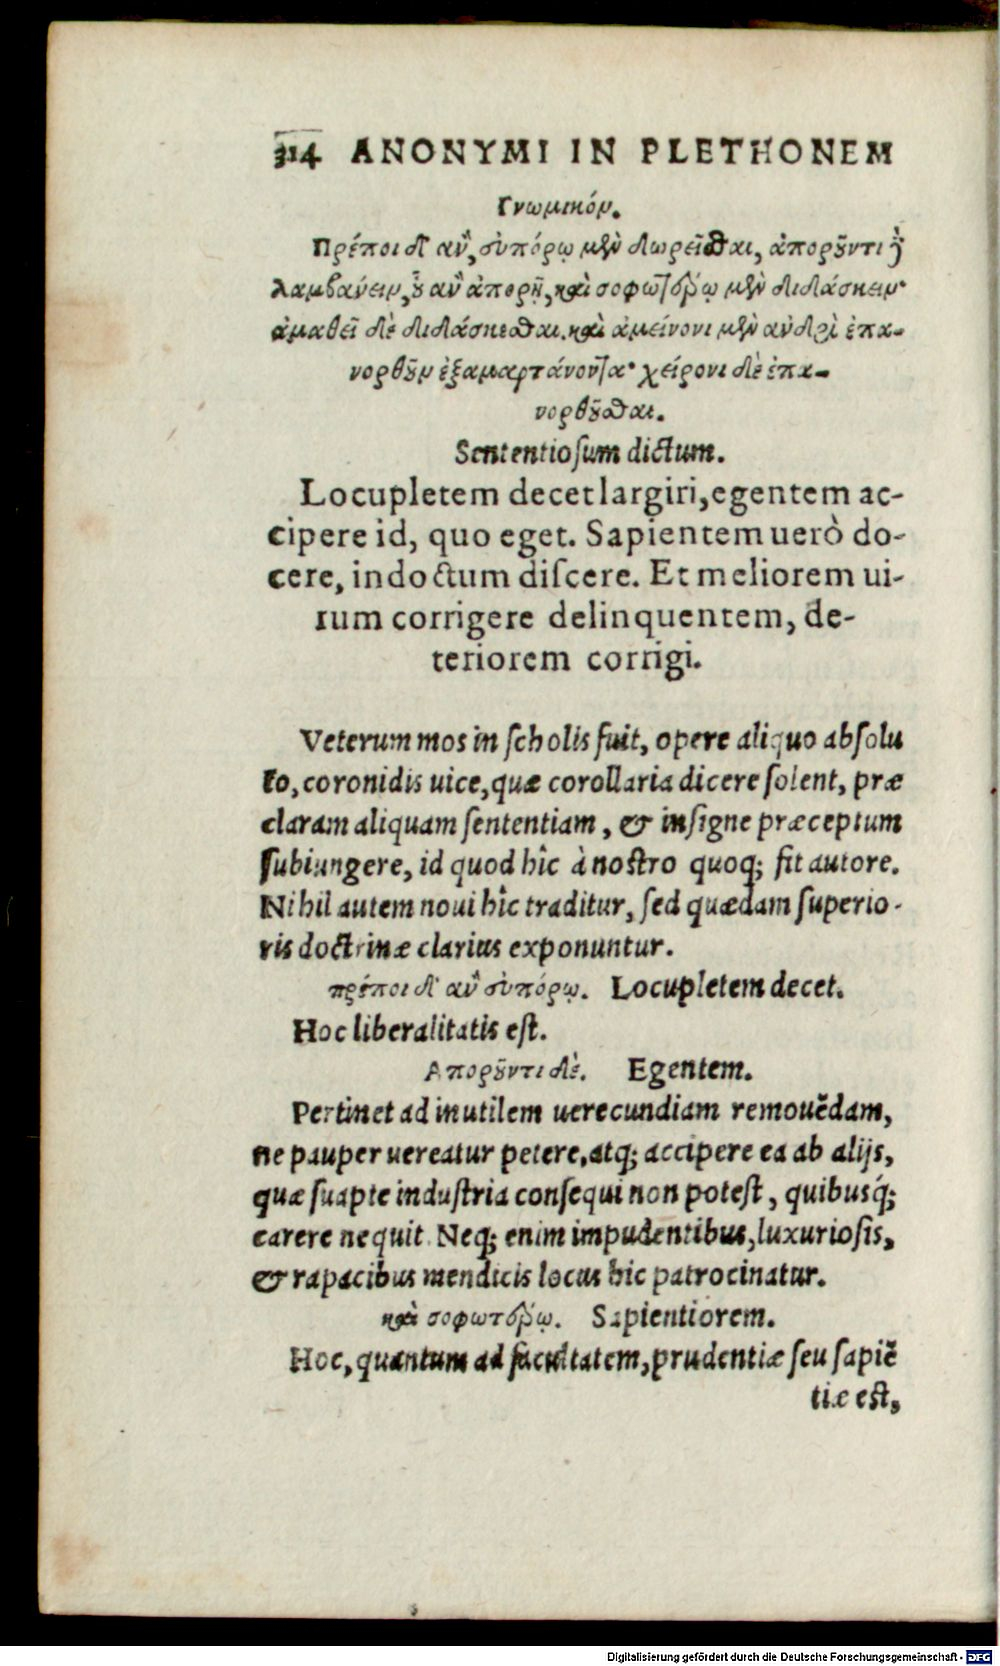 314 ANONYMI IN PLETHONEM
Γνωμικόν.
Πρέποι δ' ἂν, εὐπόρῳ μὲν δωρεῖσθαι, ἀποροῦντι δὲ
λαμβάνειν, οὗ ἂν ἀπορῇ, καὶ σοφωτέρῳ μὲν διδάσκειν·
ἀμαθεῖ δὲ διδάσκεσθαι. καὶ ἀμείνονι μὲν ἀνδρὶ ἐπα-
νορθοῦν ἐξαμαρτάνοντα· χείρονι δὲ ἐπα-
νορθοῦσθαι.
Sententiosum dictum.
Locupletem decet largiri, egentem ac-
cipere id, quo eget. Sapientem uerò do-
cere, indoctum discere. Et meliorem ui-
rum corrigere delinquentem, de-
teriorem corrigi.
Veterum mos in scholis fuit, opere aliquo absolu
to, coronidis uice, quæ corollaria dicere solent, præ
claram aliquam sententiam, & insigne præceptum
subiungere, id quod hîc à nostro quoq; fit autore.
Nihil autem noui hîc traditur, sed quædam superio-
ris doctrinæ clarius exponuntur.
πρέποι δ' ἂν εὐπόρῳ. Locupletem decet.
Hoc liberalitatis est.
Αποροῦντι δὲ. Egentem.
Pertinet ad inutilem uerecundiam remouẽdam,
ne pauper uereatur petere, atq; accipere ea ab alijs,
quæ suapte industria consequi non potest, quibusq́;
carere nequit. Neq; enim impudentibus, luxuriosis,
& rapacibus mendicis locus hic patrocinatur.
καὶ σοφωτέρῳ. Sapientiorem.
Hoc, quantum ad facultatem, prudentiæ seu sapiẽ
tiæ est,
Digitalisierung gefördert durch die Deutsche Forschungsgemeinschaft - DFG